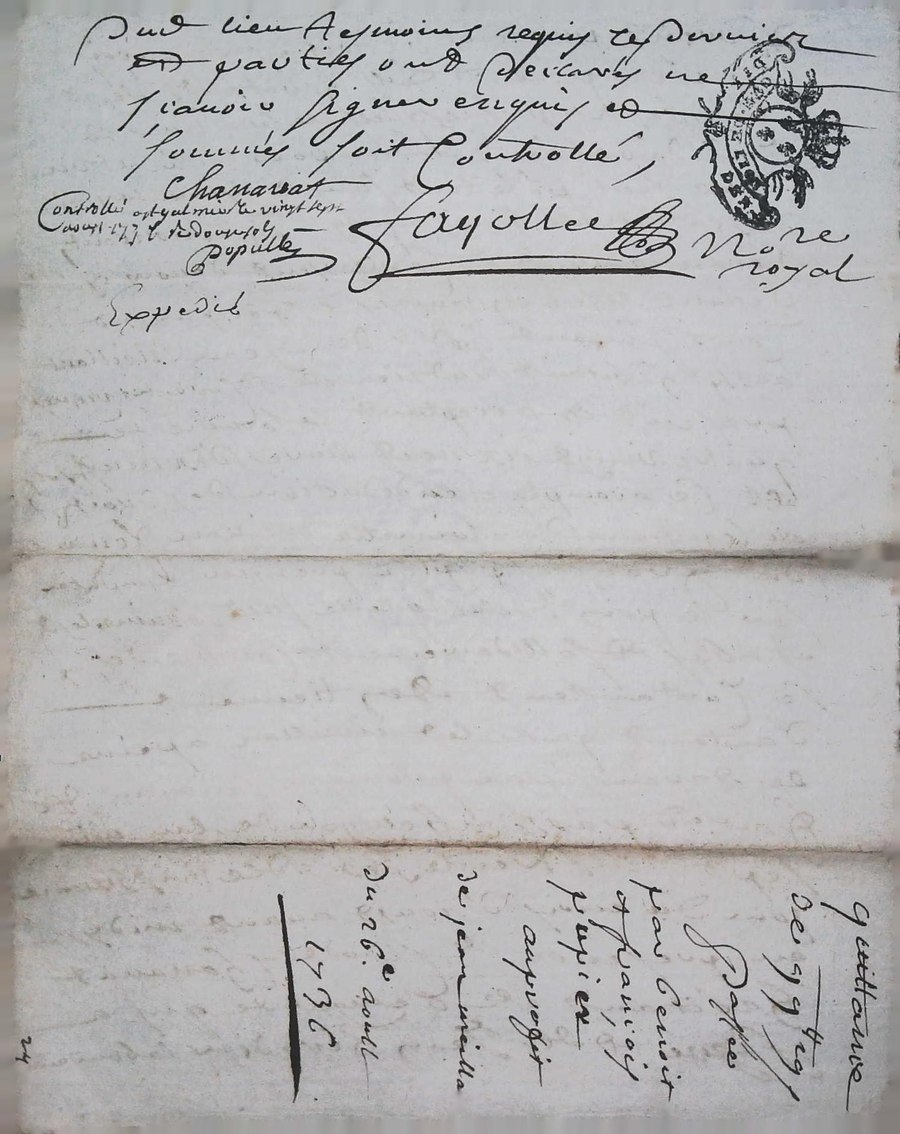 dud lieu tesmoins requis ces dernier
et parties ont declarés ne
scavoir signer enquis et
sommés soit Controllé,
Chanariat
Controllé le vingt sept
aoust 1736
Fayolle Nore
royal
Expedié
quittance
de
passée
par benoit
et francois
papier
auproffit
de jean
du 26e aoust
1736
24